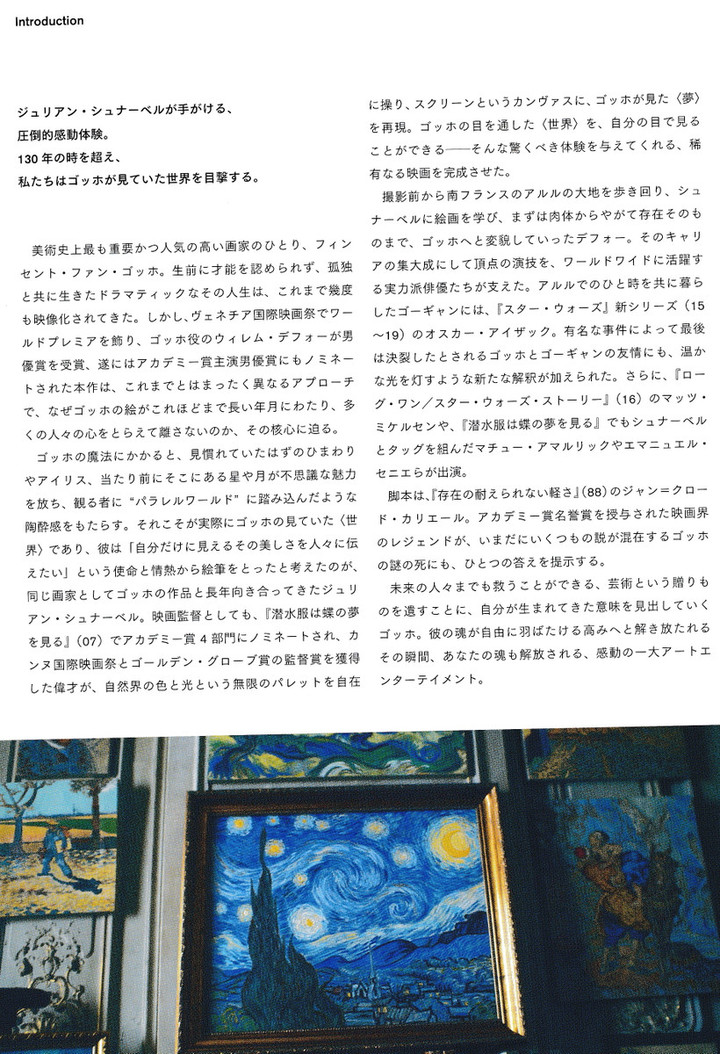 Introduction
ジュリアン・シュナーベルが手がける、
圧倒的感動体験。
130 年の時を超え、
私たちはゴッホが見ていた世界を目撃する。
美術史上最も重要かつ人気の高い画家のひとり、フィン
セント・ファン・ゴッホ。生前に才能を認められず、孤独
と共に生きたドラマティックなその人生は、これまで幾度
も映像化されてきた。しかし、ヴェネチア国際映画祭でワー
ルドプレミアを飾り、ゴッホ役のウィレム・デフォーが男
優賞を受賞、遂にはアカデミー賞主演男優賞にもノミネー
トされた本作は、これまでとはまったく異なるアプローチ
で、なぜゴッホの絵がこれほどまで長い年月にわたり、多
くの人々の心をとらえて離さないのか、その核心に迫る。
ゴッホの魔法にかかると、見慣れていたはずのひまわり
やアイリス、当たり前にそこにある星や月が不思議な魅力
を放ち、観る者に“パラレルワールド”に踏み込んだような
陶酔感をもたらす。それこそが実際にゴッホの見ていた〈世
界〉であり、彼は「自分だけに見えるその美しさを人々に伝
えたい」という使命と情熱から絵筆をとったと考えたのが、
同じ画家としてゴッホの作品と長年向き合ってきたジュリ
アン・シュナーベル。映画監督としても、『潜水服は蝶の夢
を見る』（07）でアカデミー賞 4 部門にノミネートされ、カ
ンヌ国際映画祭とゴールデン・グローブ賞の監督賞を獲得
した偉才が、自然界の色と光という無限のパレットを自在
に操り、スクリーンというカンヴァスに、ゴッホが見た〈夢〉
を再現。ゴッホの目を通した〈世界〉を、自分の目で見る
ことができる──そんな驚くべき体験を与えてくれる、稀
有なる映画を完成させた。
撮影前から南フランスのアルルの大地を歩き回り、シュ
ナーベルに絵画を学び、まずは肉体からやがて存在そのも
のまで、ゴッホへと変貌していったデフォー。そのキャリ
アの集大成にして頂点の演技を、ワールドワイドに活躍す
る実力派俳優たちが支えた。アルルでのひと時を共に暮ら
したゴーギャンには、『スター・ウォーズ』新シリーズ（15
～19）のオスカー・アイザック。有名な事件によって最後
は決裂したとされるゴッホとゴーギャンの友情にも、温か
な光を灯すような新たな解釈が加えられた。さらに、『ロー
グ・ワン／スター・ウォーズ・ストーリー』（16）のマッツ・
ミケルセンや、『潜水服は蝶の夢を見る』でもシュナーベル
とタッグを組んだマチュー・アマルリックやエマニュエル・
セニエらが出演。
脚本は、『存在の耐えられない軽さ』（88）のジャン＝クロー
ド・カリエール。アカデミー賞名誉賞を授与された映画界
のレジェンドが、いまだにいくつもの説が混在するゴッホ
の謎の死にも、ひとつの答えを提示する。
未来の人々までも救うことができる、芸術という贈りも
のを遺すことに、自分が生まれてきた意味を見出していく
ゴッホ。彼の魂が自由に羽ばたける高みへと解き放たれる
その瞬間、あなたの魂も解放される、感動の一大アートエ
ンターテイメント。